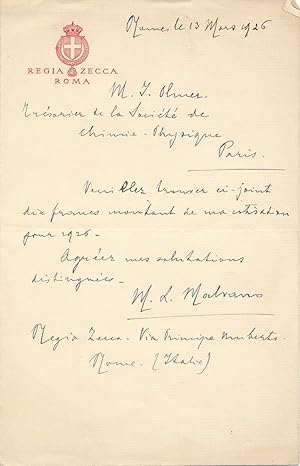 Rome, le 13 Mars 1926
REGIA ZECCA
ROMA
M. J. Olmer.
Trésorier de la Société de
Chimie-Physique
Paris.
Veuillez trouver ci-joint
dix francs montant de ma cotisation
pour 1926.-
Agréez mes salutations
distinguées.-
M. L. Malvano
Regia Zecca. Via Principe Umberto.
Rome. (Italie)